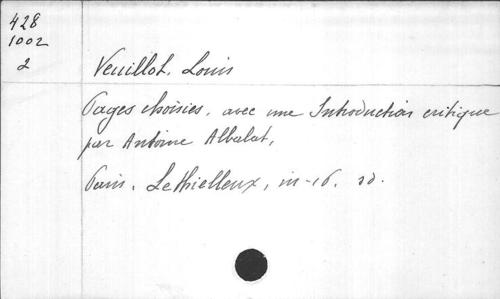 428
1002
2
Veuillot, Louis
Pages choisies, avec une Introduction critique
par Antoine Albalat,
Paris, Lethielleux, in-16.